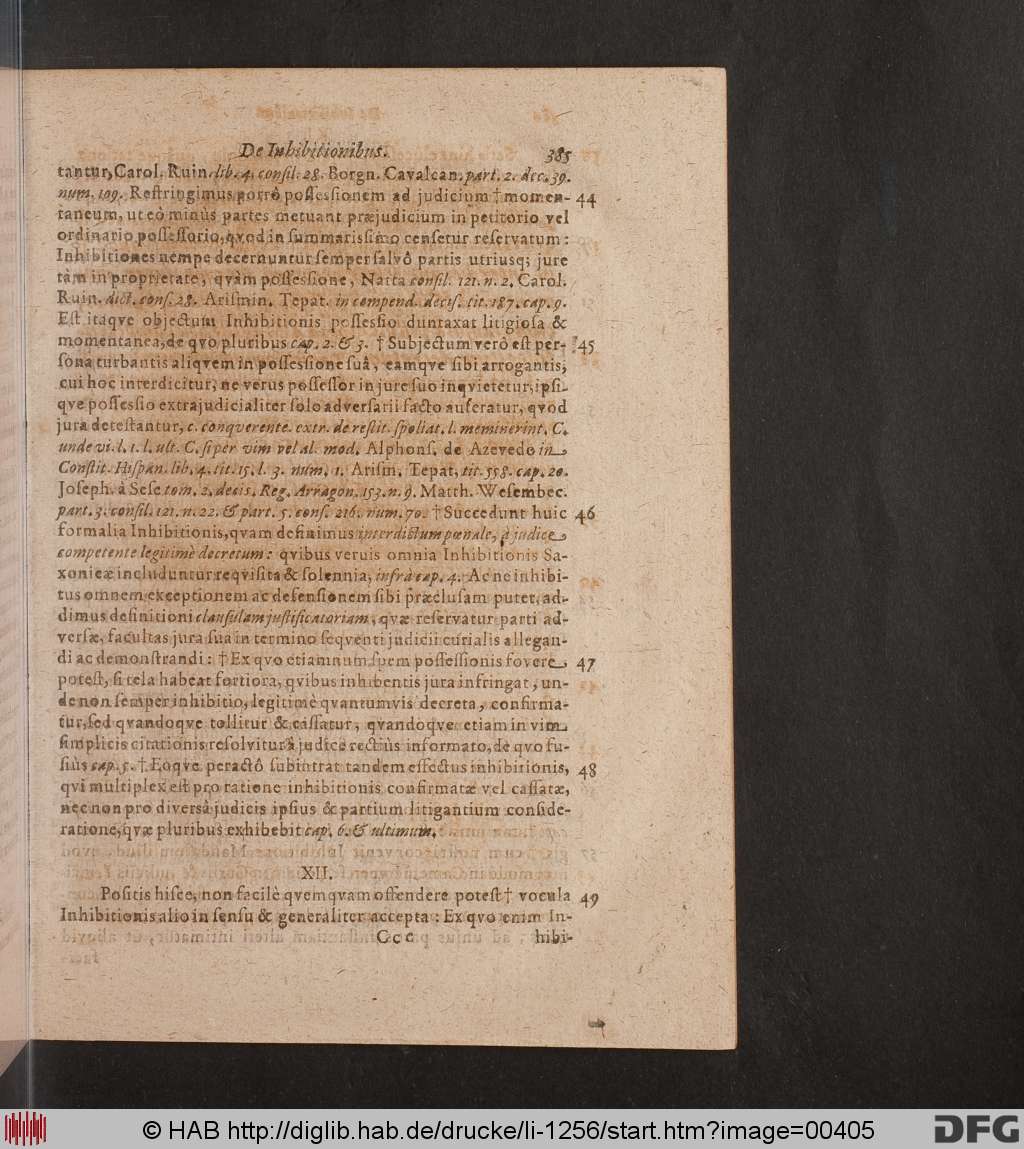 De Inhibitionibus. 385
tantur, Carol. Ruin. lib. 4. consil. 28. Borgn. Cavalcan. part. 2. dec. 39.
num. 109. Restringimus porrò possessionem ad judicium † momen- 44
taneum, ut eò minùs partes metuant præjudicium in petitorio vel
ordinario possessorio, qvod in summarissimo censetur reservatum:
Inhibitiones nempe decernuntur semper salvô partis utriusq; jure
tàm in proprietate, qvàm possessione, Natta consil. 121. n. 2. Carol.
Ruin. dict. cons. 28. Arismin. Tepat. in compend. decis. tit. 187. cap. 9.
Est itaqve objectum Inhibitionis possessio duntaxat litigiosa &
momentanea, de qvo pluribus cap. 2. & 3. † Subjectum verò est per- 45
sona turbantis aliqvem in possessione suâ, eamqve sibi arrogantis,
cui hoc interdicitur, ne verus possessor in jure suo inqvietetur, ipsi-
qve possessio extrajudicialiter solo adversarii facto auferatur, qvod
jura detestantur, c. conqverente. extr. de restit. spoliat. l. meminerint. C.
unde vi. l. 1. l. ult. C. si per vim vel al. mod. Alphons. de Azevedo in
Constit. Hispan. lib. 4. tit. 15. l. 3. num. 1. Arism. Tepat. tit. 558. cap. 20.
Joseph. à Sese tom. 2. decis. Reg. Arragon. 153. n. 9. Matth. Wesembec.
part. 3. consil. 121. n. 22. & part. 5. cons. 216. num. 70. † Succedunt huic 46
formalia Inhibitionis, qvam definimus interdictum pœnale, à judice
competente legitimè decretum: qvibus veruis omnia Inhibitionis Sa-
xonicæ includuntur reqvisita & solennia, infrà cap. 4. Ac ne inhibi-
tus omnem exceptionem ac defensionem sibi præclusam putet, ad-
dimus definitioni clausulam justificatoriam, qvæ reservatur parti ad-
versæ, facultas jura sua in termino seqventi judicii curialis allegan-
di ac demonstrandi: † Ex qvo etiamnum spem possessionis fovere 47
potest, si tela habeat fortiora, qvibus inhibentis jura infringat, un-
de non semper inhibitio, legitimè qvantumvis decreta, confirma-
tur, sed qvandoqve tollitur & cassatur, qvandoqve etiam in vim
simplicis citationis resolvitur à judice rectiùs informato, de qvo fu-
siùs cap. 5. † Eoqve peractô subintrat tandem effectus inhibitionis, 48
qvi multiplex est pro ratione inhibitionis confirmatæ vel cassatæ,
nec non pro diversâ judicis ipsius & partium litigantium conside-
ratione, qvæ pluribus exhibebit cap. 6. & ultimum.
XII.
Positis hisce, non facilè qvemqvam offendere potest † vocula 49
Inhibitionis alio in sensu & generaliter accepta: Ex qvo enim In-
Ccc hibi-
© HAB http://diglib.hab.de/drucke/li-1256/start.htm?image=00405
DFG